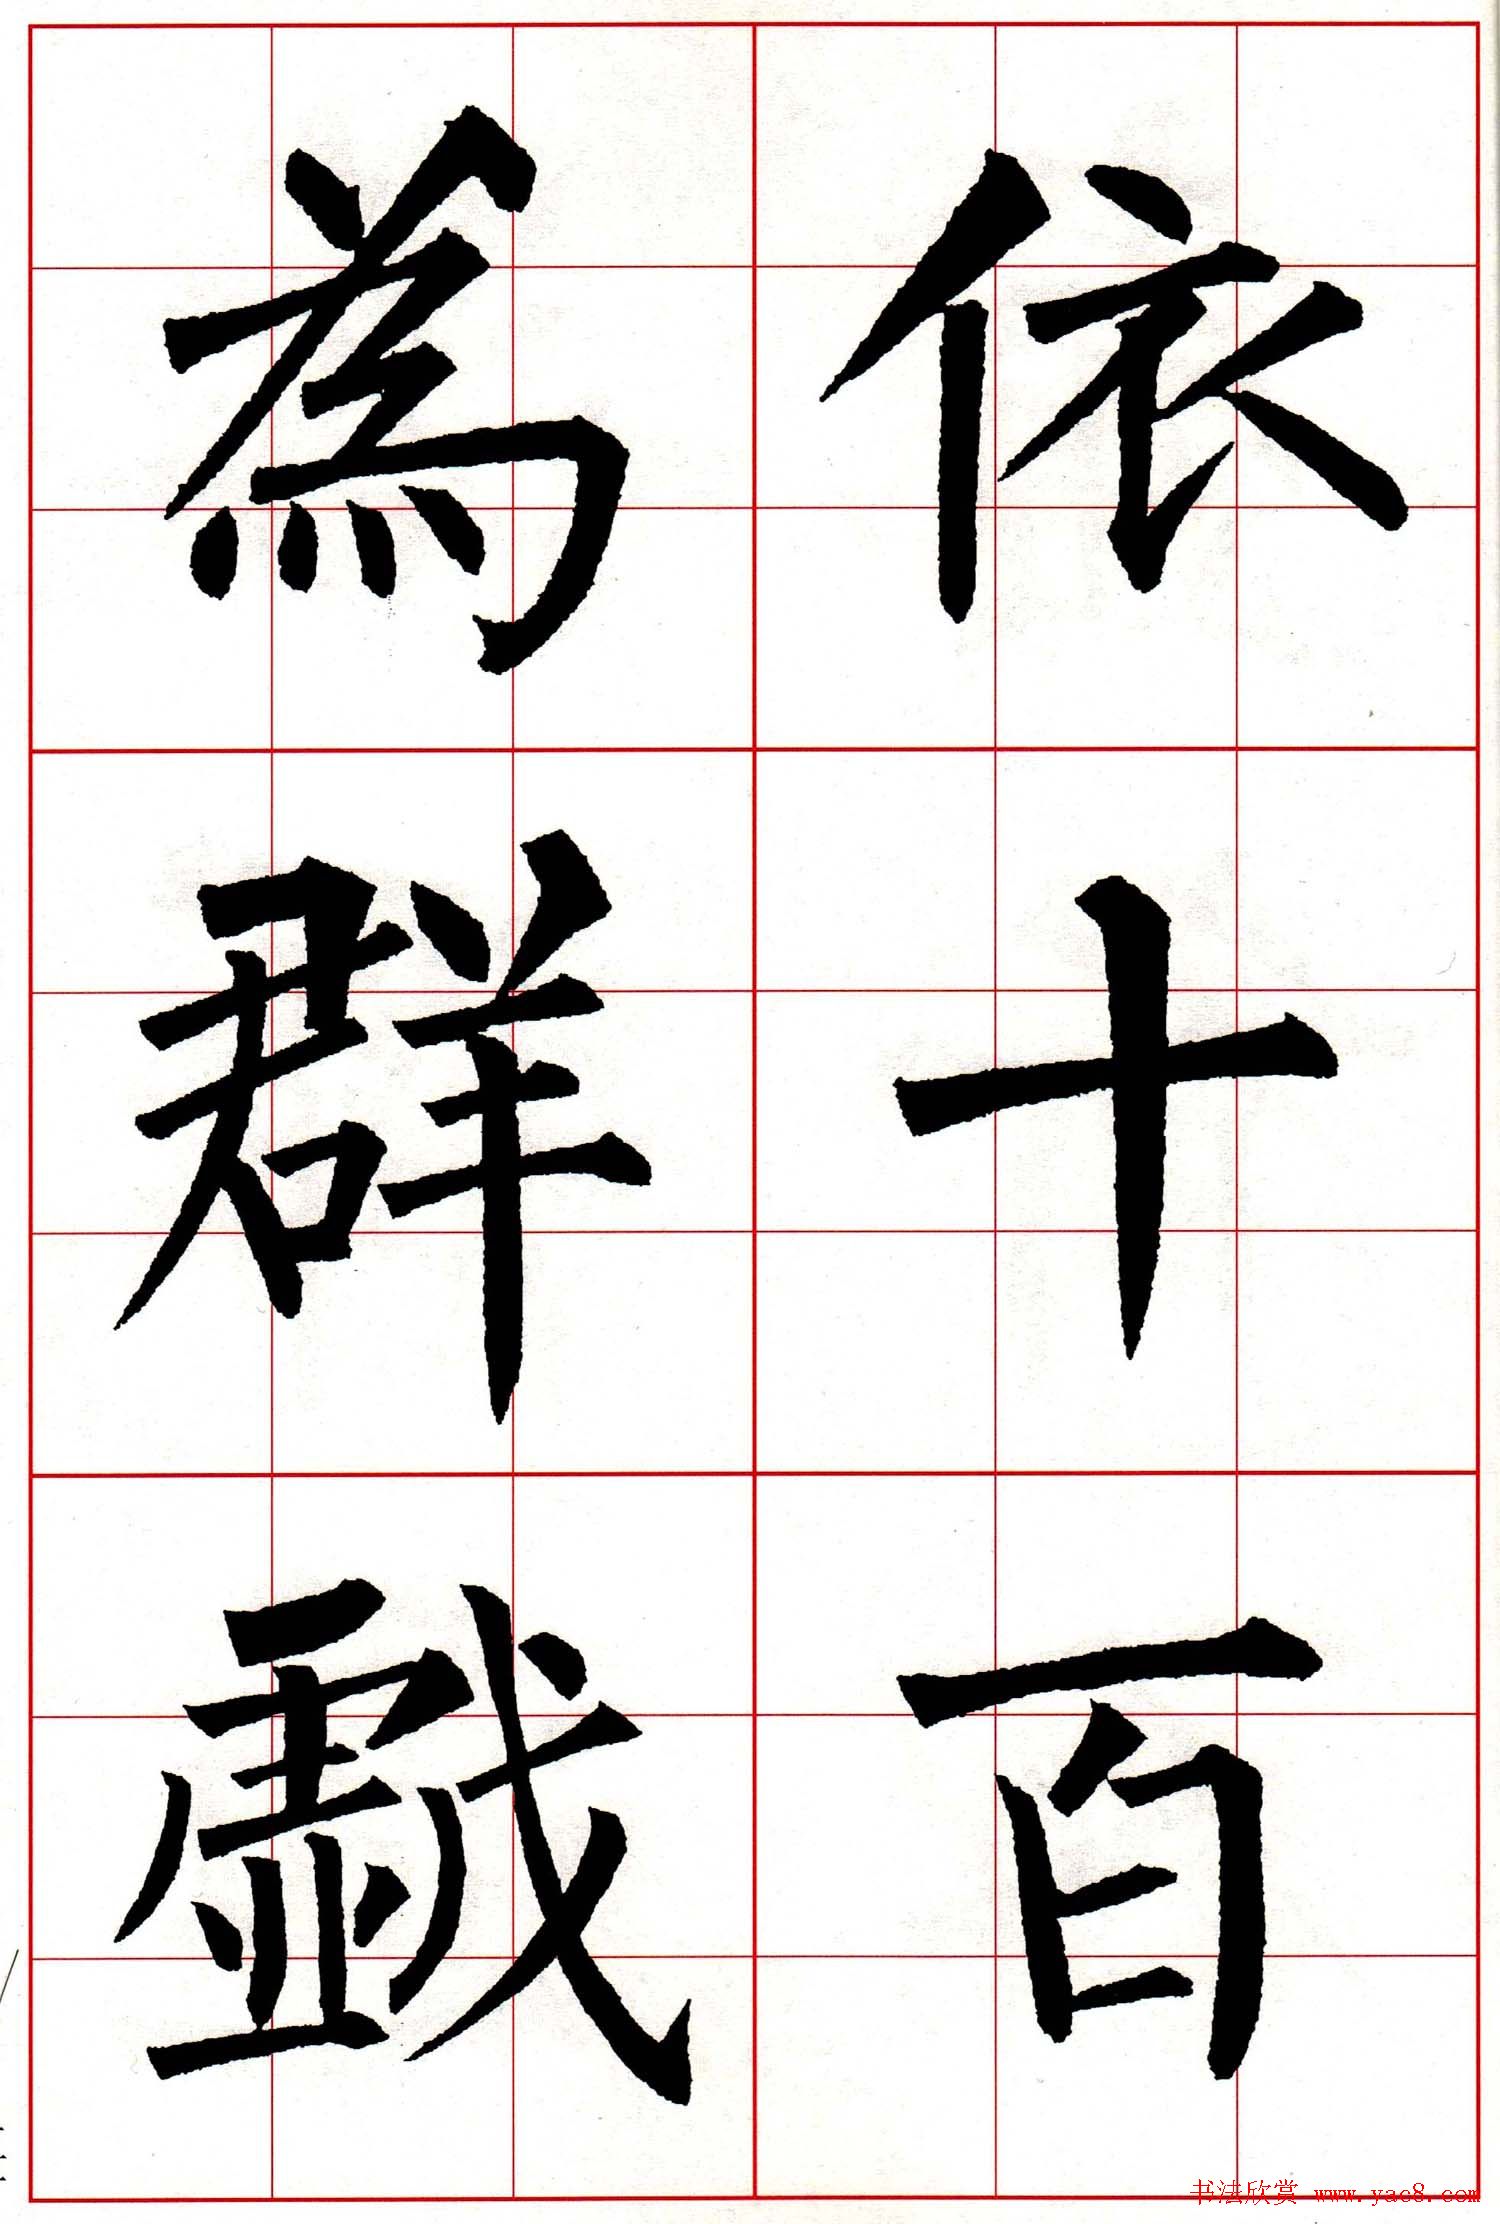 依十百
為群戲
书法欣赏 www.yac8.com